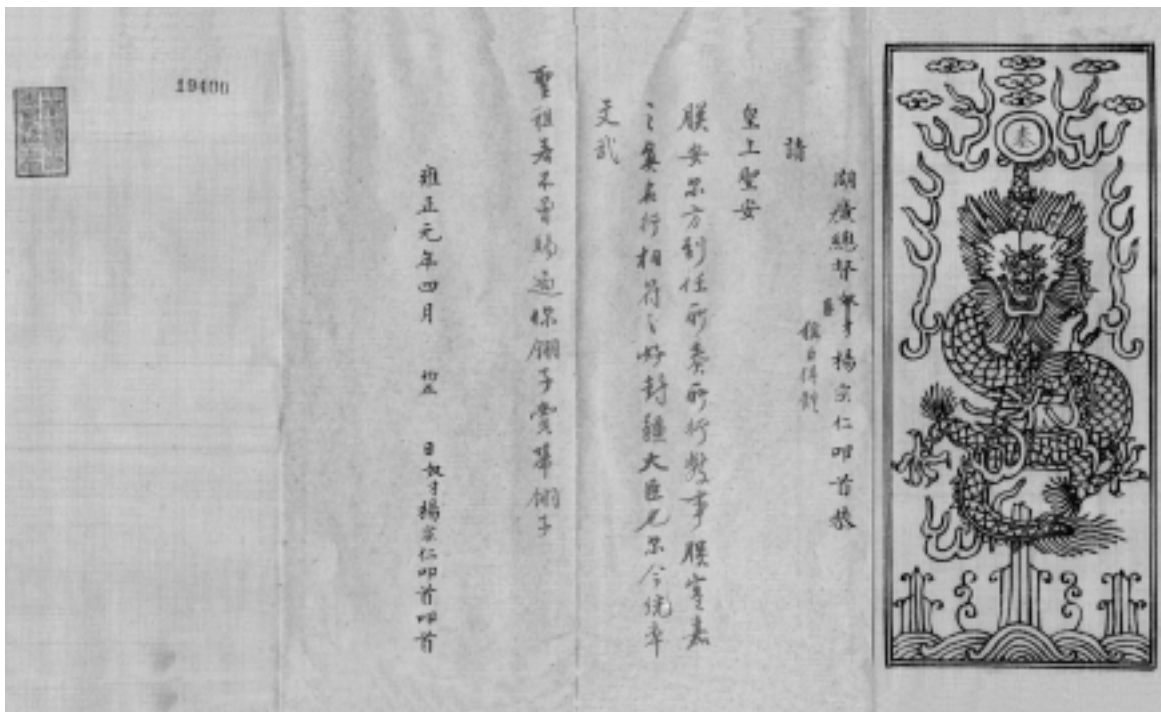 奏
湖廣總督奴才楊宗仁叩首恭
臣
稱臣得體
請
皇上聖安
朕安尔方到任所奏所行數事朕實嘉
之奏若行相符之好封疆大臣尔今統率
文武
聖祖若不曾賜過你翎子賞單翎子
雍正元年四月 初五 日奴才楊宗仁叩首叩首
19400